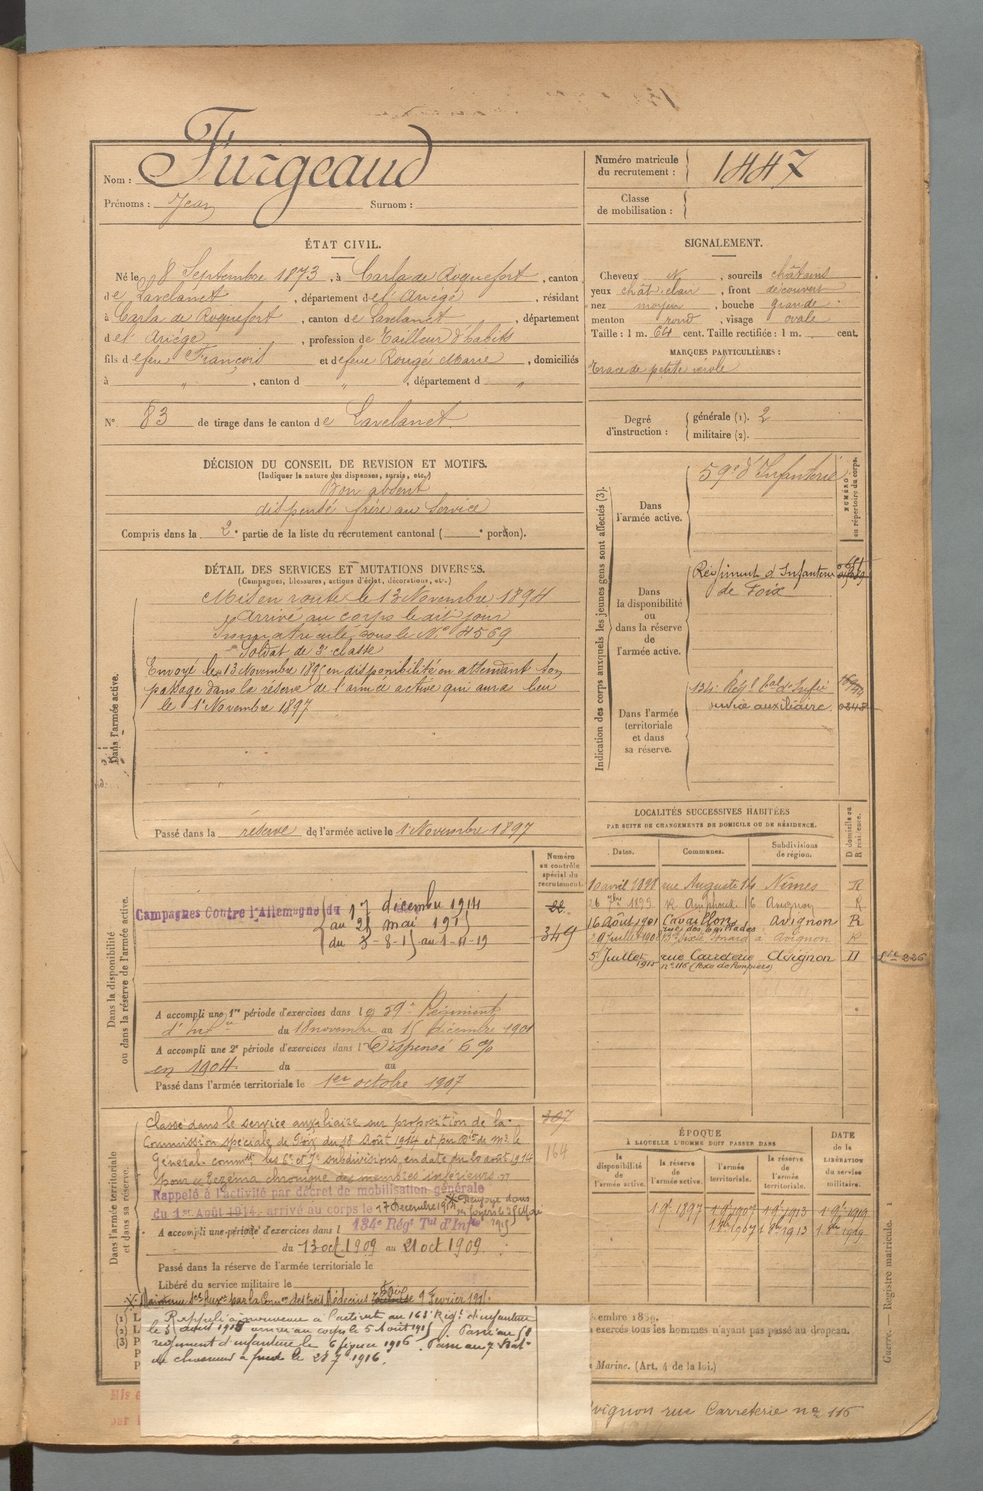 Nom : Furgeaud
Prénoms : Jean Surnom :
Numéro matricule du recrutement : 1447
Classe de mobilisation :
ÉTAT CIVIL.
Né le 8 Septembre 1873, à Carla de Roquefort, canton
de Lavelanet, département de l'Ariége, résidant
à Carla de Roquefort, canton de Lavelanet, département
de l'Ariége, profession de Tailleur d'habits
fils de feu François et de feue Rougé Marie, domiciliés
à " , canton d " , département d "
N° 83 de tirage dans le canton de Lavelanet.
DÉCISION DU CONSEIL DE REVISION ET MOTIFS.
(Indiquer la nature des dispenses, sursis, etc.)
Bon absent
dispensé frère au service
Compris dans la 2e partie de la liste du recrutement cantonal ( e portion).
DÉTAIL DES SERVICES ET MUTATIONS DIVERSES.
(Campagnes, blessures, actions d'éclat, décorations, etc.)
Dans l'armée active.
Mis en route le 13 Novembre 1894
Arrivé au corps le dit jour
Immatriculé sous le N° 4569
Soldat de 2e classe
Envoyé le 13 Novembre 1895 en disponibilité en attendant son
passage dans la réserve de l'armée active qui aura lieu
le 1 Novembre 1897
Passé dans la réserve de l'armée active le 1 Novembre 1897
Numéro au contrôle spécial du recrutement.
Dans la disponibilité ou dans la réserve de l'armée active.
Campagnes Contre l'Allemagne du 17 décembre 1914
au 25 mai 1915
du 5-8-15 au 1-11-19
349
A accompli une 1re période d'exercices dans le 59e Régiment
d'Infie du 18 novembre au 15 décembre 1901
A accompli une 2e période d'exercices dans l Dispensé
en 1904 du au
Passé dans l'armée territoriale le 1er octobre 1907
Dans l'armée territoriale et dans sa réserve.
Classé dans le service auxiliaire sur proposition de la
Commission spéciale de Foix du 18 Août 1914 et par Don de Mr. le
Général commt les 6e et 7e subdivisions, en date du 20 août 1914
pour eczema chronique des membres inférieurs
Rappelé à l'activité par décret de mobilisation générale
du 1er Août 1914. arrivé au corps le 17 Décembre 1914 Renvoyé dans
ses foyers le 25 Mai 1915
A accompli une période d'exercices dans l 134e Régt Tal d'Infie
du 13 oct 1909 au 21 oct 1909.
Passé dans la réserve de l'armée territoriale le
Libéré du service militaire le
164
Maintenu des trois Médecins 9 Février 1915.
Rappelé à nouveau à l'activité au 163e Régt d'infanterie
le 3 août 1915 arrivé au corps le 5 Août 1915. Passé au 58
régiment d'infanterie le 6 février 1916. Passé au 7 Bat.
de chasseurs à pied le 28 7 1916.
SIGNALEMENT.
Cheveux N, sourcils châtains
yeux chât. clair, front découvert
nez moyen, bouche grande
menton rond, visage ovale
Taille : 1 m. 64 cent. Taille rectifiée : 1 m. cent.
MARQUES PARTICULIÈRES :
Trace de petite vérole
Degré d'instruction :
générale (1). 2
militaire (2).
Indication des corps auxquels les jeunes gens sont affectés (3).
NUMÉRO au répertoire du corps.
Dans l'armée active.
59e d'Infanterie
Dans la disponibilité ou dans la réserve de l'armée active.
Régiment d'Infanterie
de Foix
Dans l'armée territoriale et dans sa réserve.
134e Régt tal d'Infie
service auxiliaire.
LOCALITÉS SUCCESSIVES HABITÉES
PAR SUITE DE CHANGEMENTS DE DOMICILE OU DE RÉSIDENCE.
Dates. Communes. Subdivisions de région. D domicile ou R résidence.
10 avril 1898 rue Auguste 14 Nîmes R
26 7bre 1899 R. Amphoux 16 Avignon R
16 Août 1901 Cavaillon Avignon R
29 Juillet 1908 Avignon R
5 Juillet 1912 rue Carréterie Avignon D
n° 116 (Poste de Pompiers)
ÉPOQUE
À LAQUELLE L'HOMME DOIT PASSER DANS
la disponibilité de l'armée active. la réserve de l'armée active. l'armée territoriale. la réserve de l'armée territoriale.
DATE de la LIBÉRATION du service militaire.
1 9bre 1897 1 9bre 1907 1 9bre 1913 1 9bre 1919
1 8bre 1907 1 8bre 1913 1 8bre 1919
exercés tous les hommes n'ayant pas passé au drapeau.
Marine. (Art. 4 de la loi.)
Avignon rue Carreterie n° 116
Guerre. — Registre matricule. 1